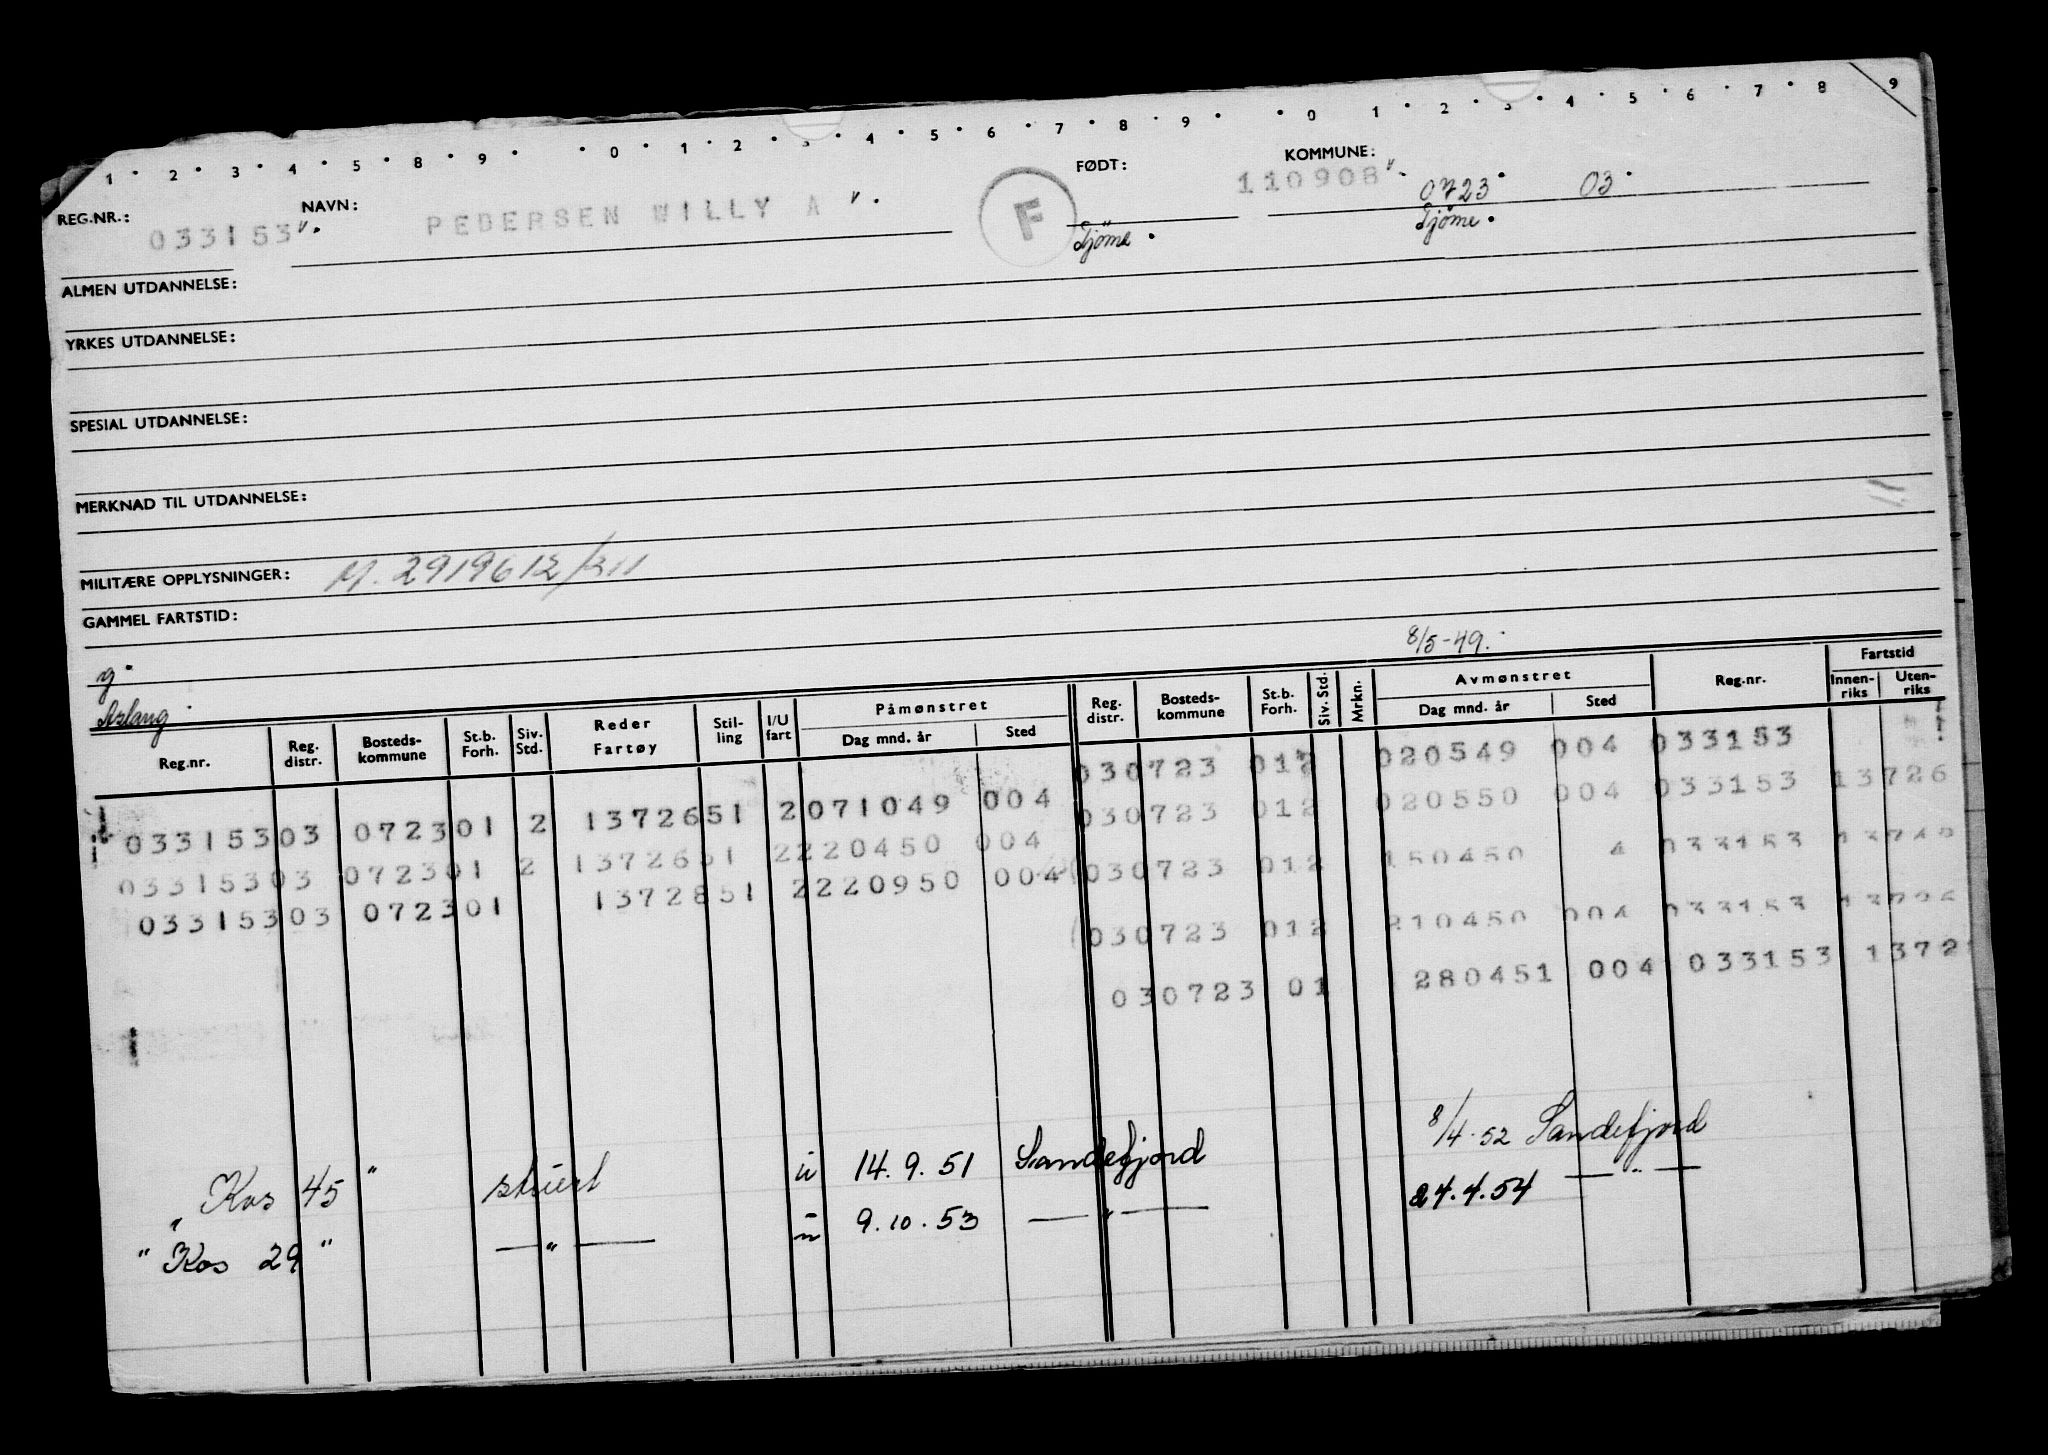 1 · 2 · 3 · 4 · 5 · 8 · 9 · · 0 · 1 · 2 · 3 · 4 · 5 · 6 · 7 · 8 · 9 · · 0 1 · 2 · 3 · 4 · 5 · 6 · 7 · 8 9
REG.NR.: NAVN: FØDT: KOMMUNE:
033153 PEDERSEN WILLY A F 110908 0723 03
Tjöme Tjöme
ALMEN UTDANNELSE:
YRKES UTDANNELSE:
SPESIAL UTDANNELSE:
MERKNAD TIL UTDANNELSE:
MILITÆRE OPPLYSNINGER: M. 2919612/311
GAMMEL FARTSTID:
g. 8/5-49.
Aslang
Reg.nr. Reg. distr. Bosteds-kommune St.b. Forh. Siv. Std. Reder Fartøy Stil-ling I/U fart Påmønstret Dag mnd. år Sted Reg. distr. Bosteds-kommune St.b. Forh. Siv. Std. Mrkn. Avmønstret Dag mnd. år Sted Reg.nr. Fartstid Innen-riks Uten-riks
030723 012 020549 004 033153
03315303 072301 2 1372651 2071049 004 030723 012 020550 004 033153 13726
03315303 072301 2 1372651 2220450 004 030723 012 150450 4 033153
03315303 072301 1372851 2220950 004 030723 012 210450 004 033153
030723 01 280451 004 033153 1372
"Kos 45" stuert u 14.9.51 Sandefjord 8/4.52 Sandefjord
"Kos 29" — " — u 9.10.53 — " — 24.4.54 — " —